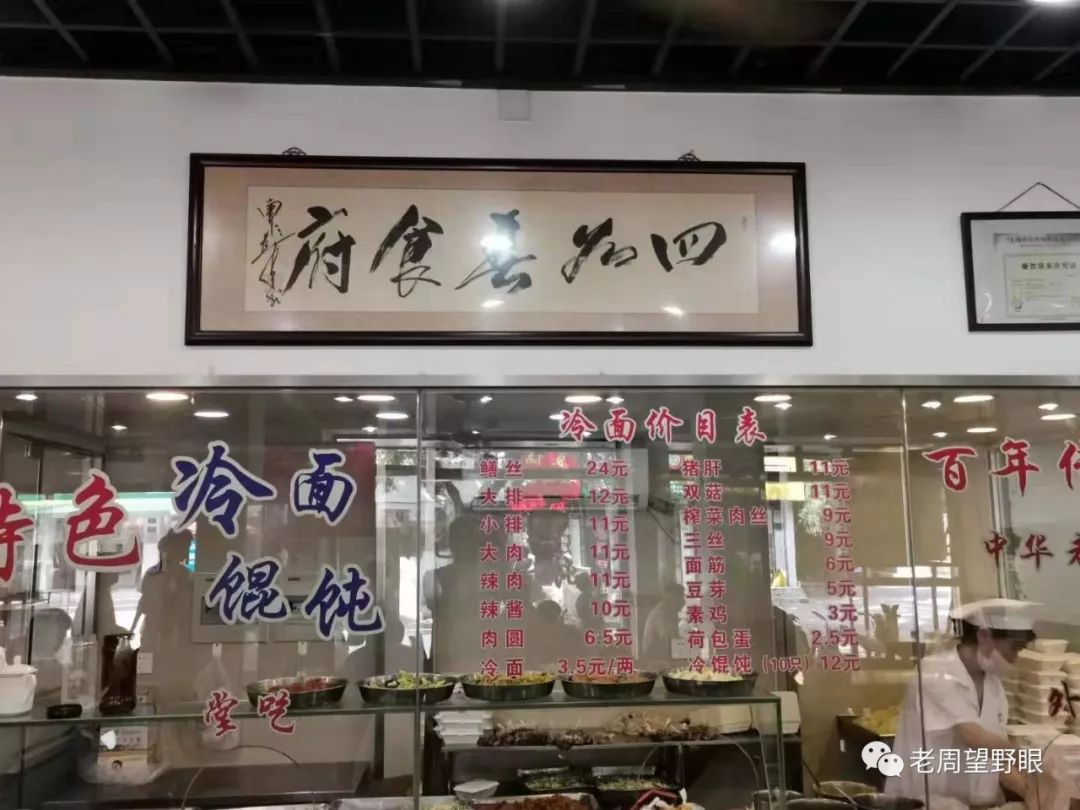 四如春食府
餐饮服务许可证
特色
冷面
馄饨
堂吃
冷面价目表
鳝丝 24元
大排 12元
小排 11元
大肉 11元
辣肉 11元
辣酱 10元
肉圆 6.5元
冷面 3.5元/两
猪肝 11元
双菇 11元
榨菜肉丝 9元
三丝 9元
面筋 6元
豆芽 5元
素鸡 3元
荷包蛋 2.5元
冷馄饨(10只) 12元
百年
中华
外
老周望野眼